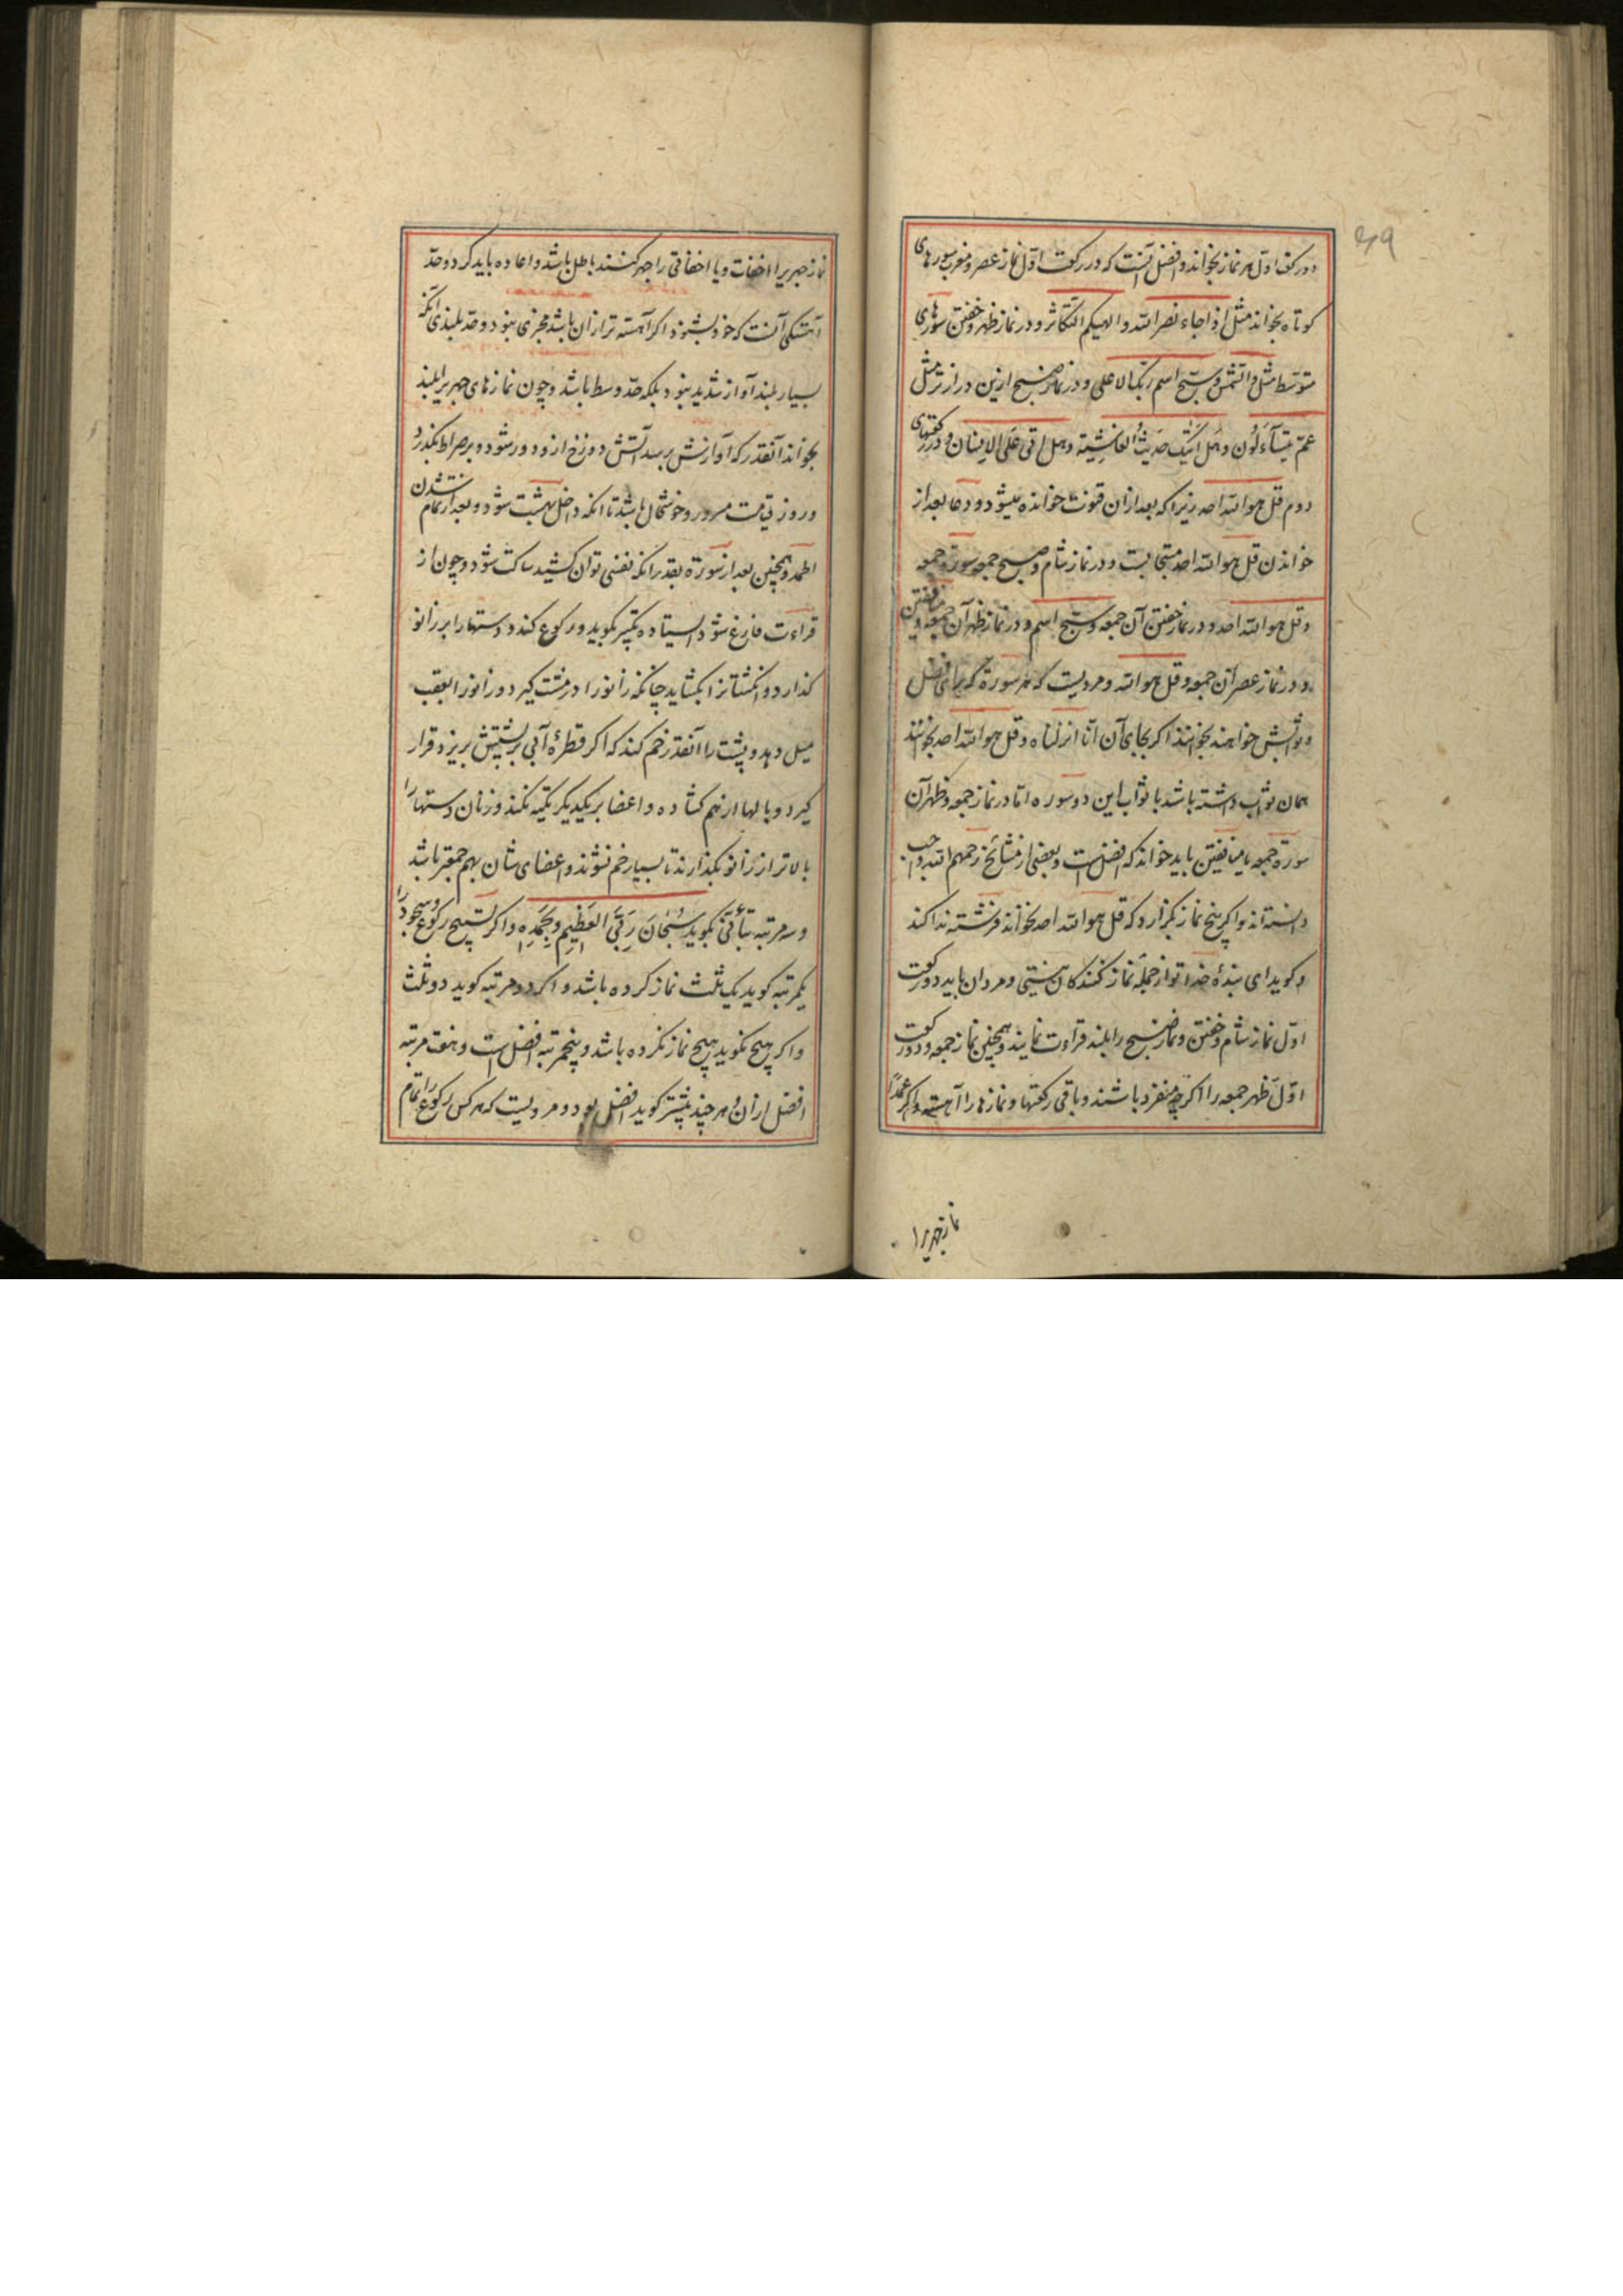 ۴۹
در رکعت اول هر نماز بخواند و افضل آنست که در رکعت اوّل نماز عصر و مغرب سورهای
کوتاه بخواند مثل اذا جاء نصر الله و الهیکم التکاثر و در نماز ظهر و خفتن سورهای
متوسّط مثل والشّمس و سبّح اسم ربّک الاعلی و در نماز صبح ازین درازتر مثل
عمّ یتسآءَلُون و هَل اَتیٰکَ حَدِیثُ الغاشِیَة و هل اتی عَلَی الاِنسان و در رکعتهای
دوم قل هو الله احد زیرا که بعد ازان قنوت خوانده میشود و دعا بعد از
خواندن قل هو الله احد مستجابست و در نماز شام و صبح جمعه سورۀ جمعه
و قل هو الله احد و در نماز خفتن آن جمعه و سبّح اسم و در نماز ظهر آن جمعه و منافقین
و در نماز عصر آن جمعه و قل هو الله و مرویست که هر سورة که برای فضل
و ثوابش خواهند بخوانند اگر بجای آن انّا انزلناه و قل هو الله احد بخوانند
همان ثواب داشته باشد با ثواب این دو سوره امّا در نماز جمعه و ظهر آن
سورۀ جمعه با منافقین باید خواند که افضلست و بعضی از مشائخ رحمهم الله واجب
دانسته اند و اگر پنج نماز بگزارد که قل هو الله احد نخواند فرشته ندا کند
و گوید ای بندۀ خدا تو از جملۀ نماز کنندگان نیستی و مردان باید دو رکعت
اوّل نماز شام و خفتن و نماز صبح را بلند قراءت نمایند و همچنین نماز جمعه و دو رکعت
اوّل ظهر جمعه را اگرچه منفرد باشند و باقی رکعتها و نمازها را آهسته و اگر عمداً
نماز جهریرا
نماز جهریرا اخفات و یا اخفاتی را جهر کنند باطل باشد و اعاده باید کرد و حدّ
آهستگی آنست که خود بشنود و اگر آهسته تر ازان باشد مجزی نبود و حدّ بلندی آنکه
بسیار بلند آواز شدید نبود بلکه حدّ وسط باشد و چون نمازهای جهریرا بلند
بخواند آنقدر که آوازش برسد آتش دوزخ ازو دور شود و بر صراط بگذرد
و روز قیامت مسرور و خوشحال باشد تا آنکه داخل بهشت شود و بعد از تمام شدن
الحمد و همچنین بعد از سوره بقدر آنکه نفسی توان کشید ساکت شود و چون از
قراءت فارغ شود ایستاده تکبیر بگوید و رکوع کند و دستها را بر زانو
گذارد و انگشتانرا بگشاید چنانکه زانو را در مشت گیرد و زانو را بعقب
میل دهد و پشت را آنقدر خم کند که اگر قطرۀ آبی بر پشتش بریزد قرار
گیرد و بالها از هم گشاده و اعضا بر یکدیگر تکیه نکند و زنان دستها را
بالاتر از زانو بگذارند تا بسیار خم نشوند و اعضای شان بهم جمعتر باشد
و سه مرتبه بتأنّی بگوید سُبْحَانَ رَبِّیَ العَظِیمِ وَبِحَمْدِهِ و اگر تسبیح رکوع و سجود را
یکمرتبه گوید یک ثلث نماز کرده باشد و اگر دو مرتبه گوید دو ثلث
و اگر هیچ نگوید هیچ نماز نکرده باشد و پنجمرتبه افضل است و هفت مرتبه
افضل ازان و هر چند بیشتر گوید افضل بود و مرویست که هر کس رکوع را تمام